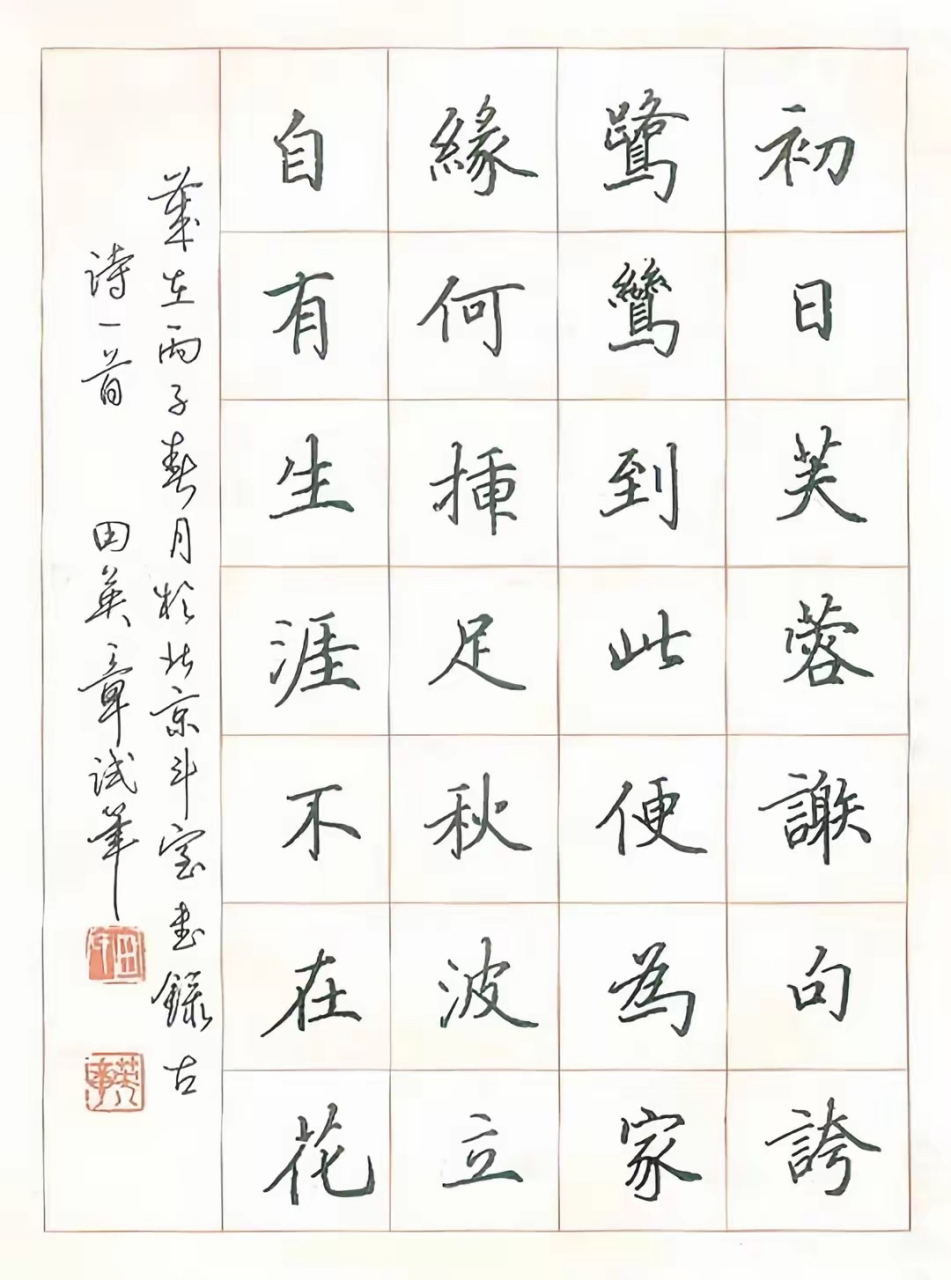 初日芙蓉謝句誇
鷺鸞到此便為家
緣何挿足秋波立
自有生涯不在花
歲在丙子春月於北京斗室書錄古
詩一首 田英章試筆
英章